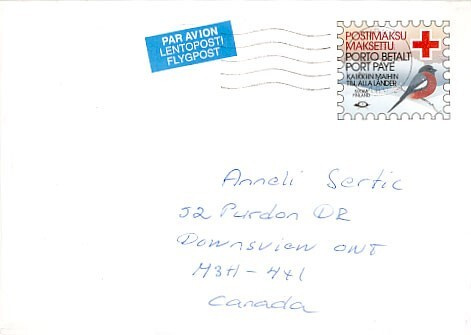 PAR AVION
LENTOPOSTI
FLYGPOST
POSTIMAKSU
MAKSETTU
PORTO BETALT
PORT PAYÉ
KAIKKIIN MAIHIN
TILL ALLA LÄNDER
FINLAND
Anneli Sertic
52 Purdon DR
Downsview ONT
M3H-4X1
Canada